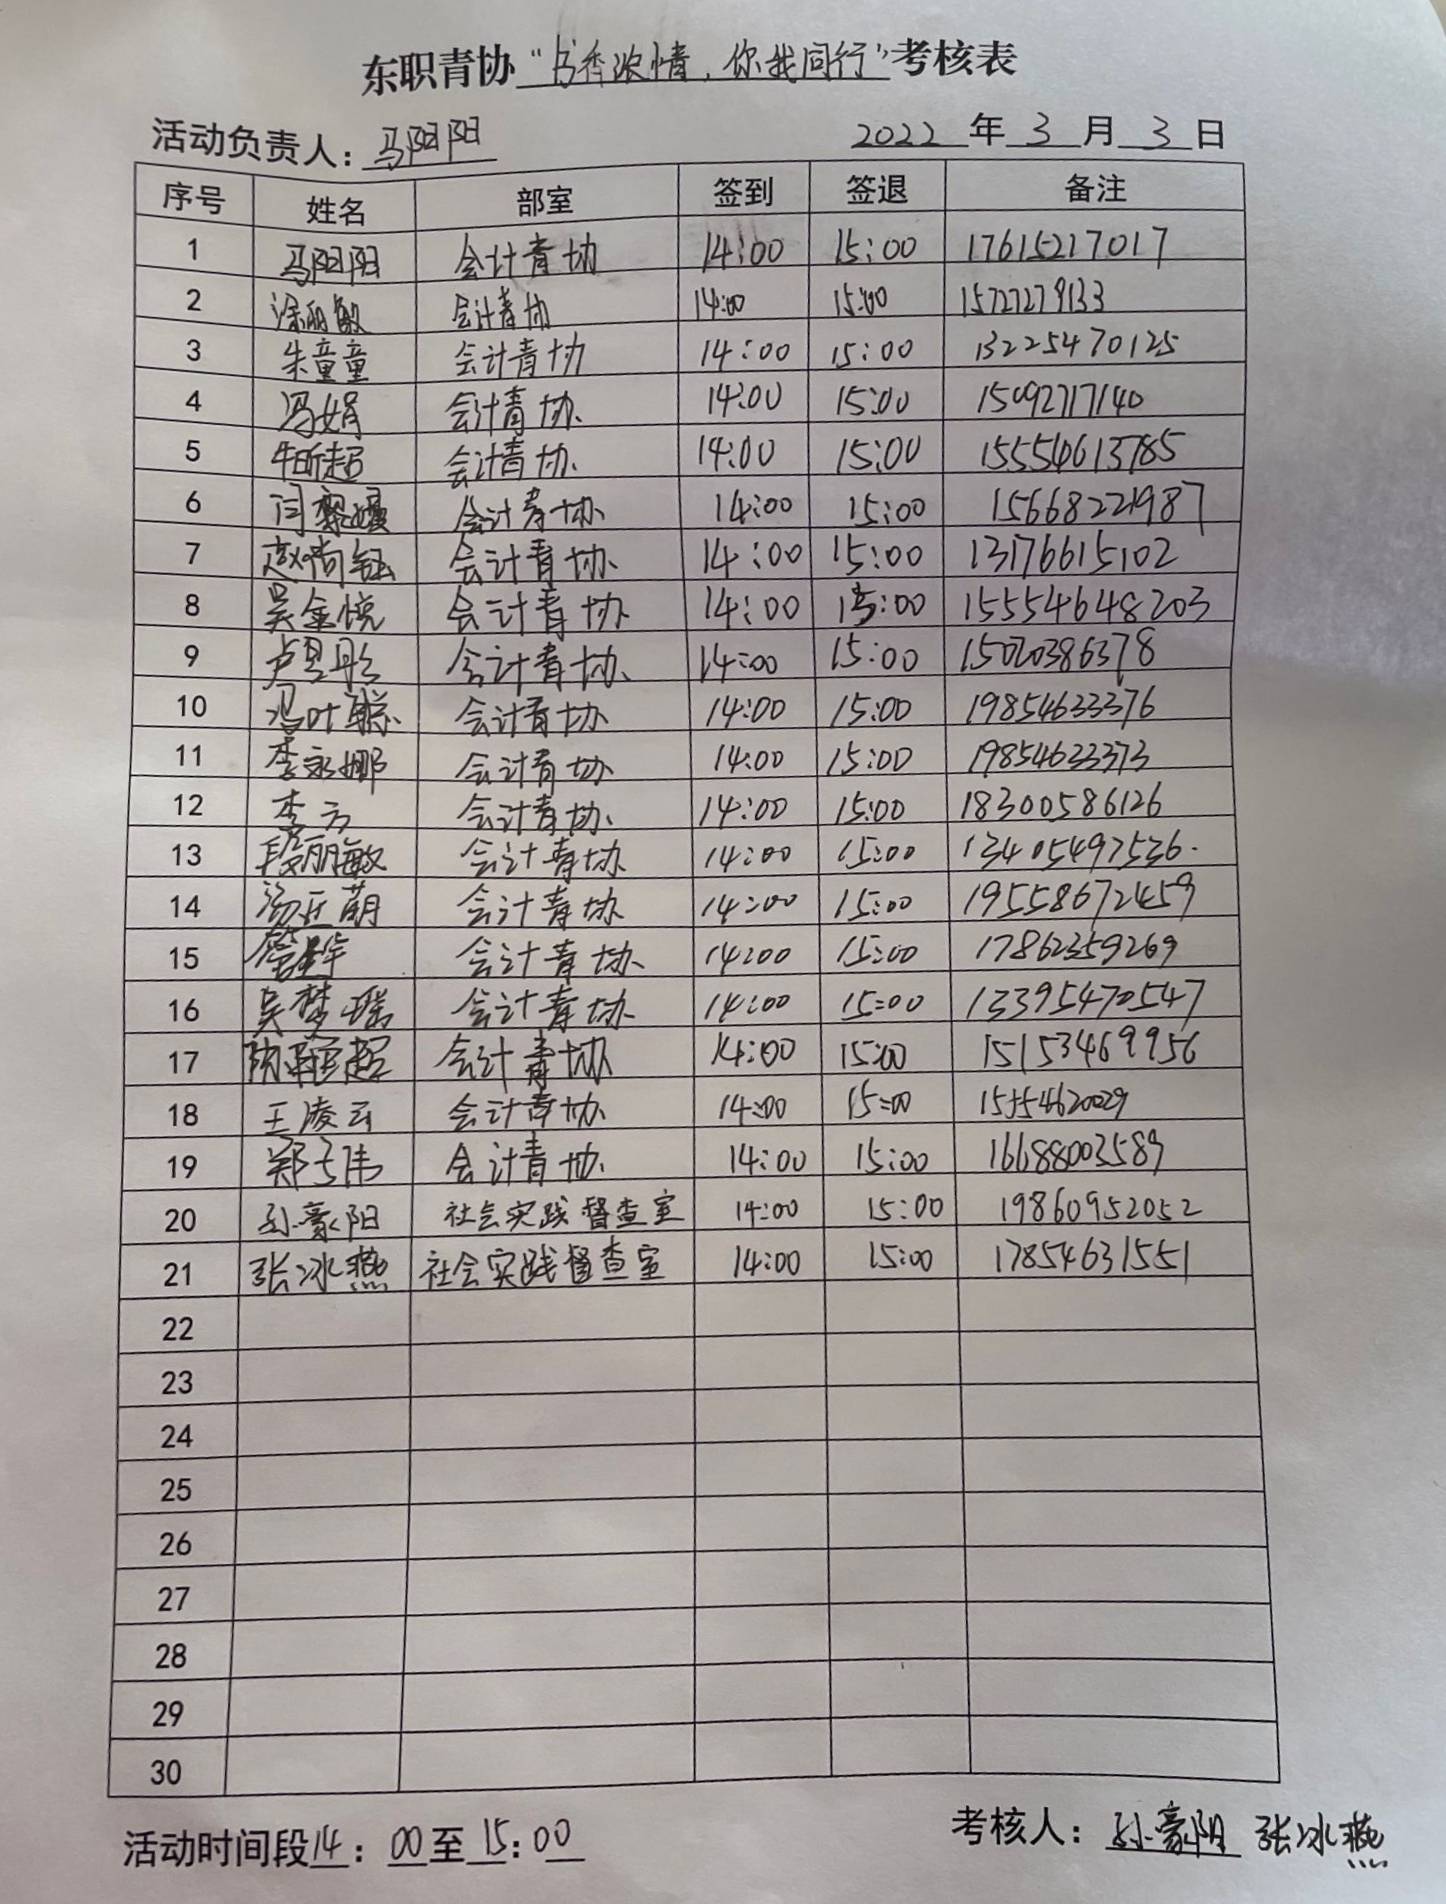 东职青协“书香浓情，你我同行”考核表
活动负责人：马阳阳 2022 年 3 月 3 日
序号 姓名 部室 签到 签退 备注
1 马阳阳 会计青协 14:00 15:00 17615217017
2 涂丽敏 会计青协 14:00 15:00 15727279133
3 朱童童 会计青协 14:00 15:00 13225470125
4 冯娟 会计青协 14:00 15:00 15092717140
5 牛昕超 会计青协 14:00 15:00 15554613785
6 闫 会计青协 14:00 15:00 15668221987
7 赵尚钰 会计青协 14:00 15:00 13176615102
8 吴金悦 会计青协 14:00 15:00 15554648203
9 卢昱彤 会计青协 14:00 15:00 15020386378
10 冯叶 会计青协 14:00 15:00 19854633376
11 李永娜 会计青协 14:00 15:00 19854633373
12 李方 会计青协 14:00 15:00 18300586126
13 段丽敏 会计青协 14:00 15:00 13405497536
14 汤正萌 会计青协 14:00 15:00 19558672459
15 会计青协 14:00 15:00 17862359269
16 吴梦瑶 会计青协 14:00 15:00 13395470547
17 超 会计青协 14:00 15:00 15153469956
18 王凌云 会计青协 14:00 15:00 15554620029
19 郑子伟 会计青协 14:00 15:00 16688003589
20 孙豪阳 社会实践督查室 14:00 15:00 19860952052
21 张冰燕 社会实践督查室 14:00 15:00 17854631551
22
23
24
25
26
27
28
29
30
活动时间段14：00至15：00 考核人：孙豪阳 张冰燕